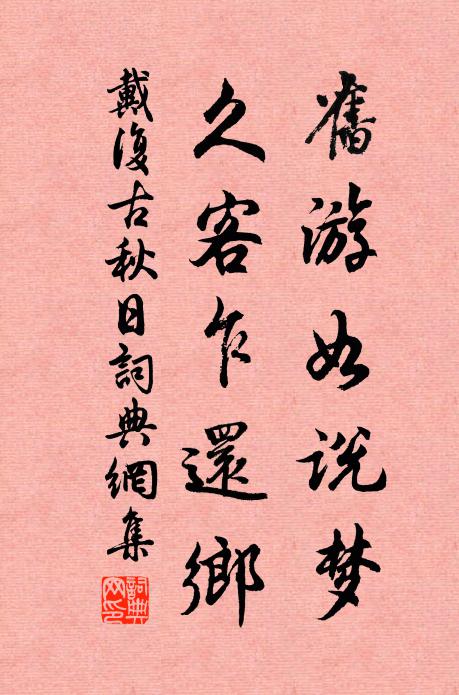 舊游如说梦
久客乍還鄉
戴復古秋日詞典網集
詞典網印